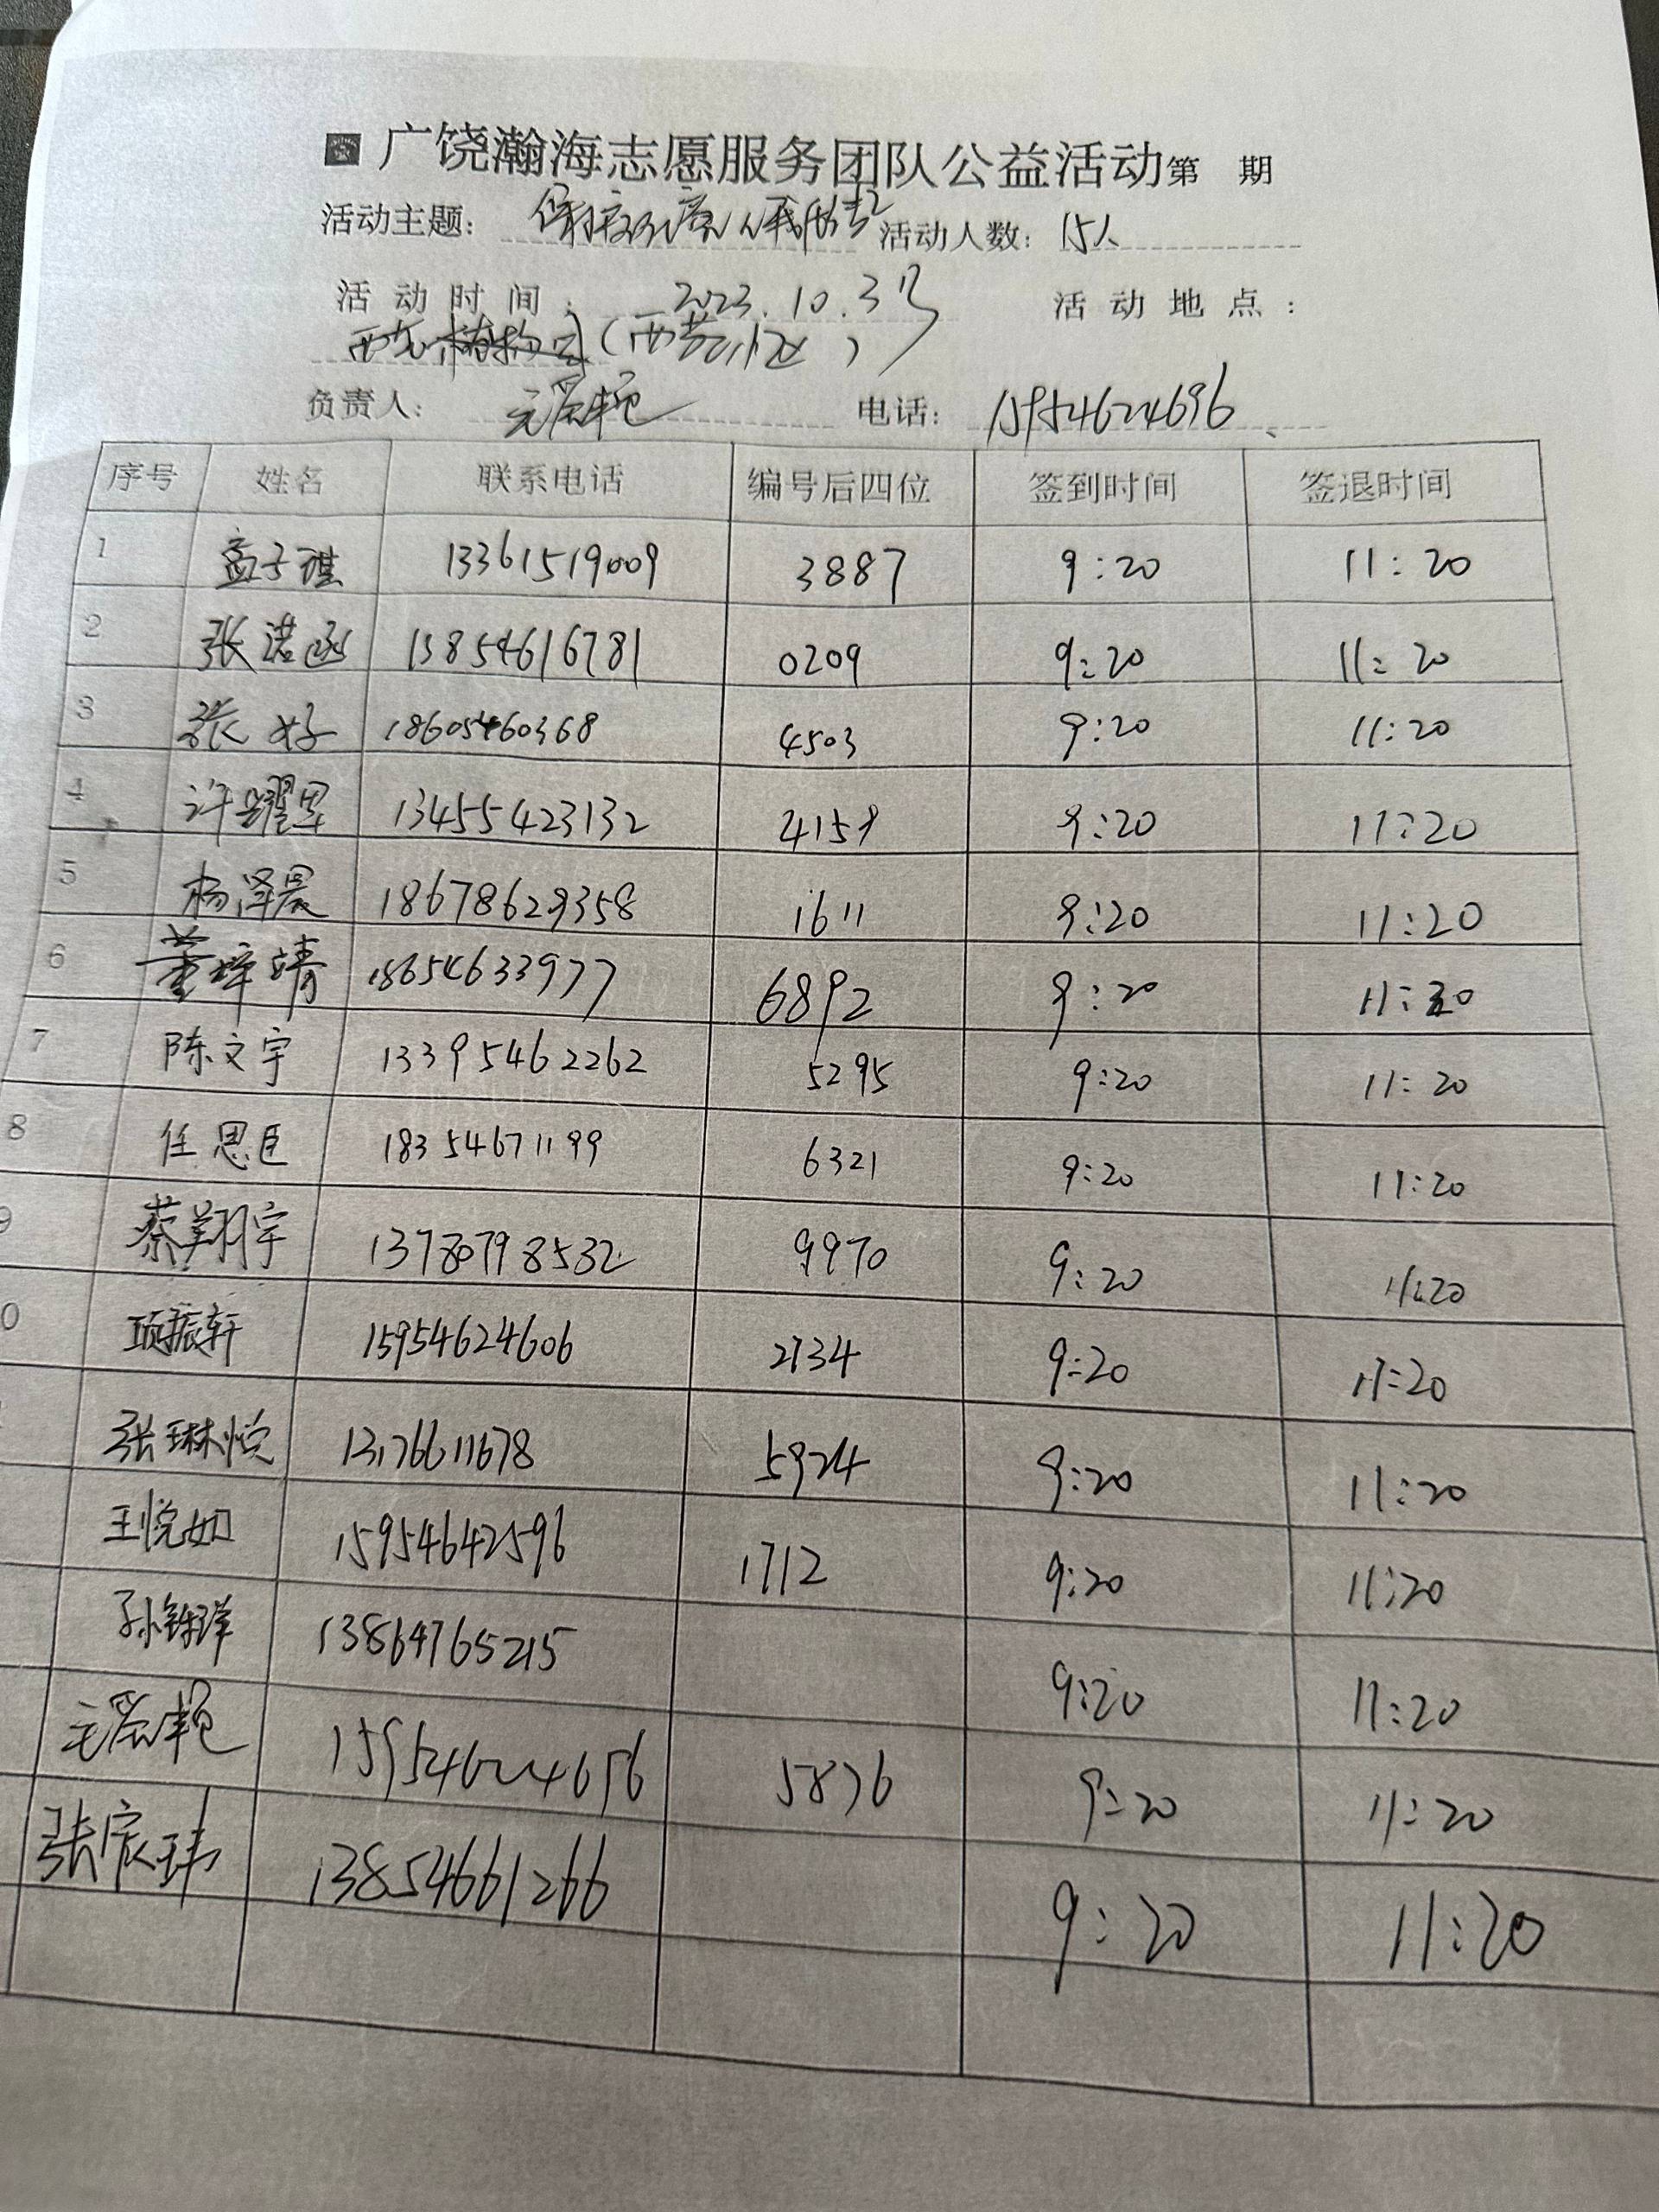 广饶瀚海志愿服务团队公益活动第 期
活动主题: 保护环境从我做起 活动人数: 15人
活动时间: 2023.10.3号 活动地点:
负责人: 电话: 15954624696
序号 姓名 联系电话 编号后四位 签到时间 签退时间
1 孟子琪 13361519009 3887 9:20 11:20
2 张诺函 13854616781 0209 9:20 11:20
3 张好 18605460368 4503 9:20 11:20
4 许耀军 13455423132 4159 9:20 11:20
5 杨泽晨 18678629358 1611 9:20 11:20
6 董梓靖 18654633977 6892 9:20 11:20
7 陈文宇 13395462262 5295 9:20 11:20
8 任思臣 18354671199 6321 9:20 11:20
9 蔡翔宇 13780798532 9970 9:20 11:20
0 项振轩 15954624606 2734 9:20 11:20
张琳悦 13176611678 5924 9:20 11:20
王悦如 15954642596 1712 9:20 11:20
孙铢洋 13864765215 9:20 11:20
15954624696 5876 9:20 11:20
张宸玮 13854661266 9:20 11:20